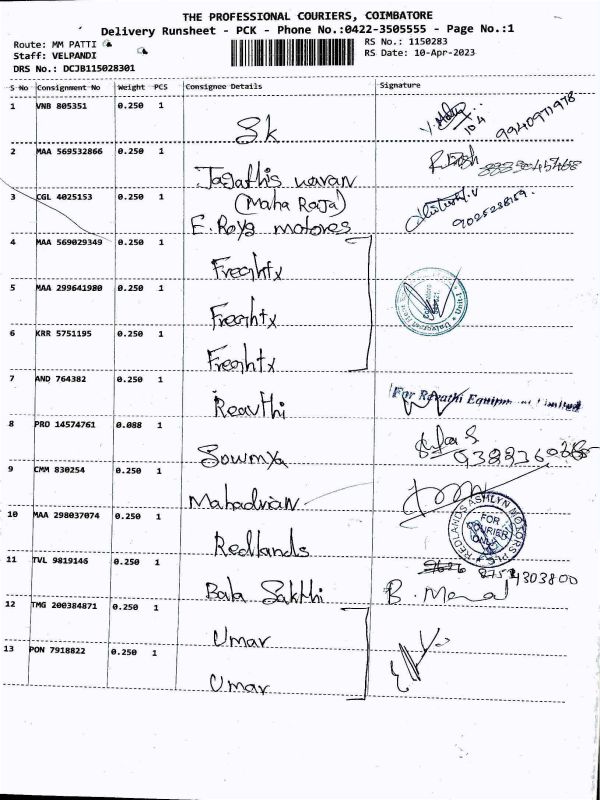 THE PROFESSIONAL COURIERS, COIMBATORE
Delivery Runsheet - PCK - Phone No.:0422-3505555 - Page No.:1
Route: MM PATTI
Staff: VELPANDI
DRS No.: DCJB115028301
RS No.: 1150283
RS Date: 10-Apr-2023
S No Consignment No Weight PCS Consignee Details Signature
1 VNB 805351 0.250 1
Sk 9940971978
2 MAA 569532866 0.250 1
3 CGL 4025153 0.250 1
(Maha Raja)
9025238159.
E. Roys motores
4 MAA 569029349 0.250 1
Freghtx
5 MAA 299641980 0.250 1
Freghtx
6 KRR 5751195 0.250 1
Freghtx
7 AND 764382 0.250 1
For Revathi
8 PRO 14574761 0.088 1
Sowmya
9 CMM 830254 0.250 1
10 MAA 298037074 0.250 1
Redlands
REDLANDS ASHLYN MOTORS PLC
FOR COURIER ONLY
11 TVL 9819146 0.250 1
Bala Sakthi
12 TMG 200384871 0.250 1
Umar
13 PON 7918822 0.250 1
Umar